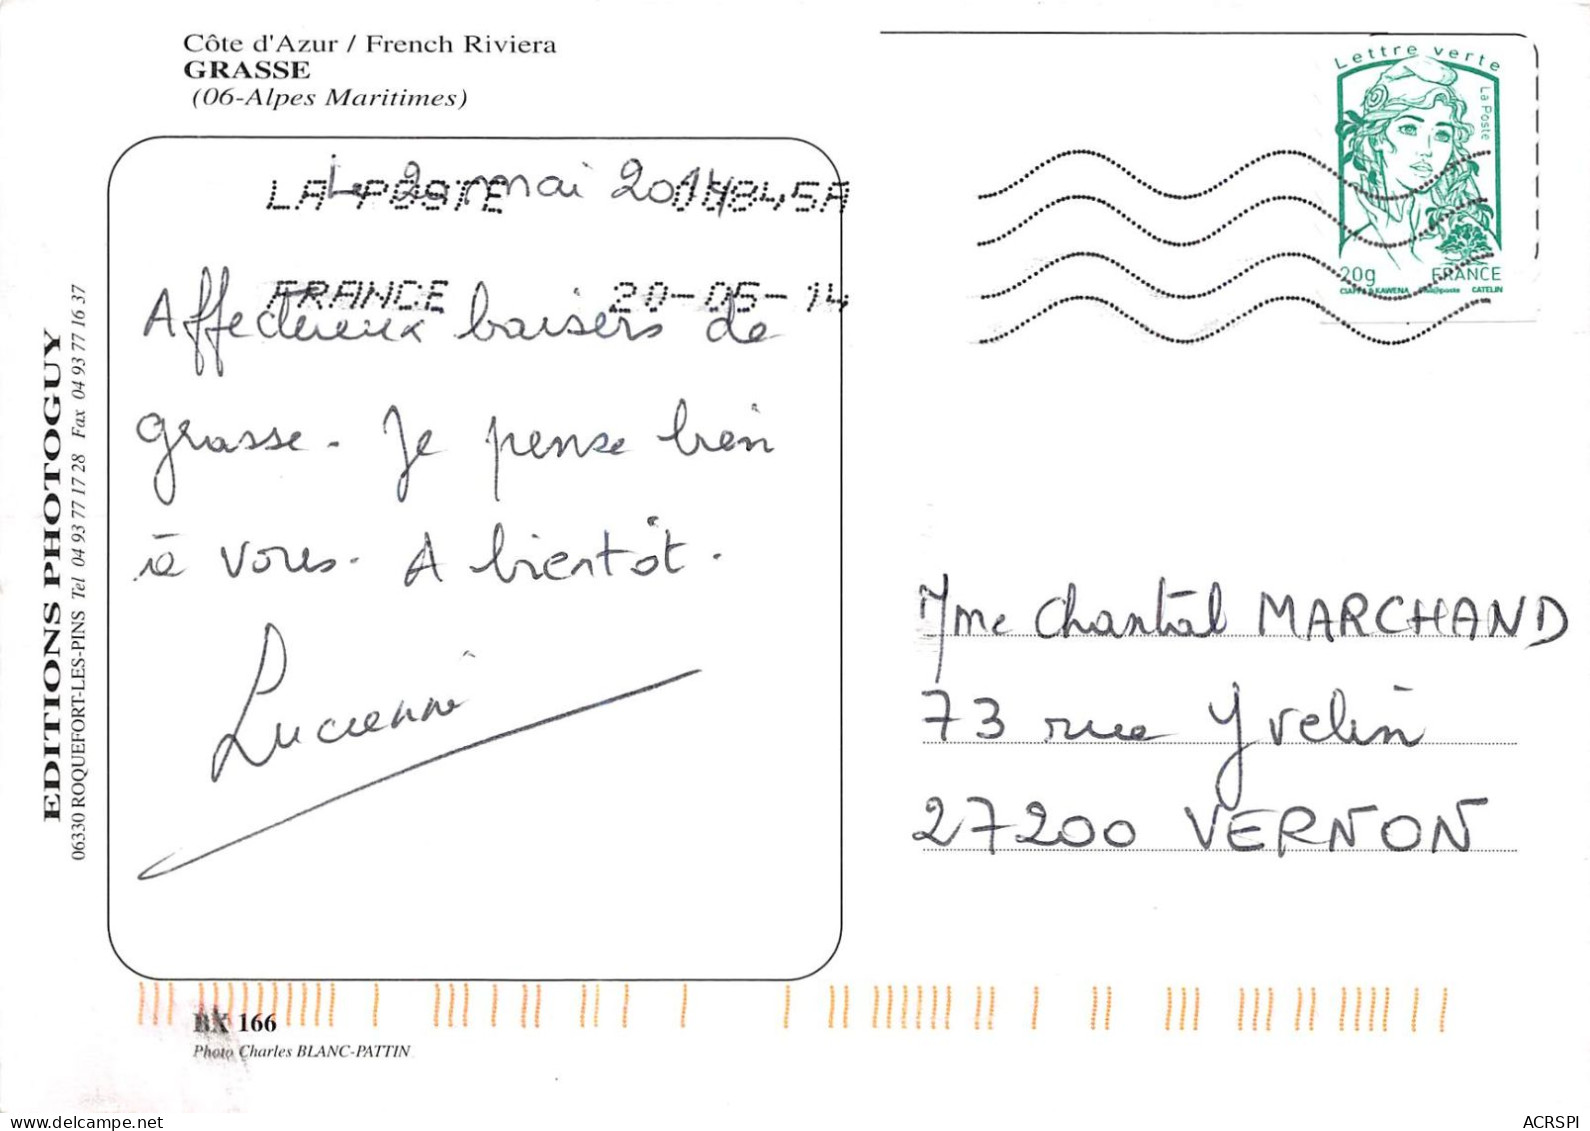 Côte d'Azur / French Riviera
GRASSE
(06-Alpes Maritimes)
EDITIONS PHOTOGUY
06330 ROQUEFORT-LES-PINS Tel 04 93 77 17 28 Fax 04 93 77 16 37
Le 20 mai 2014
LA POSTE 00845A
FRANCE 20-05-14
Affectueux baisers de
grasse. Je pense bien
à vous. A bientôt.
Lucienne
Lettre verte
La Poste
20g FRANCE
CIAPPA & KAWENA CATELIN
Mme Chantal MARCHAND
73 rue Yvelin
27200 VERNON
BX 166
Photo Charles BLANC-PATTIN
ACRSPI